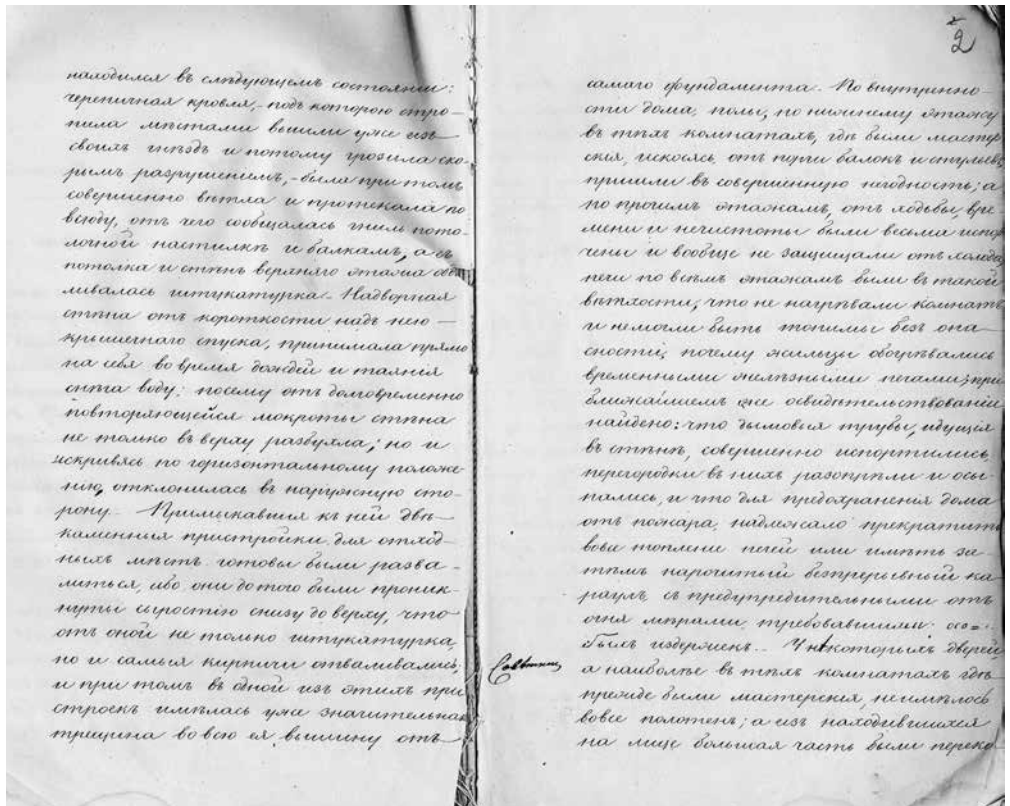 находился въ слѣдующемъ состояніи:
черепичная кровля,- подъ которою стро-
пила мѣстами вышли уже изъ
своихъ гнѣздъ и потому грозила ско-
рымъ разрушеніемъ,- была при томъ
совершенно ветха и протекала по
всюду, отъ чего сообщалась гниль пото-
лочной настилкѣ и балкамъ, а съ
потолка и стѣнъ верхняго этажа обва-
ливалась штукатурка. Надворная
стѣна отъ короткости надъ нею
крышечнаго спуска, принимала прямо
на себя во время дождей и таянія
снѣга воду; посему отъ долговременно
повторяющейся мокроты стѣна
не только въ верху разбухла; но и
искривясь по горизонтальному положе-
нію, отклонилась въ наружную сто-
рону. Примыкавшія къ ней двѣ
каменныя пристройки для отход-
ныхъ мѣстъ готовы были разва-
литься, ибо они до того были проник-
нуты сыростію снизу до верху, что
отъ оной не только штукатурка,
но и самыя кирпичи отваливались;
и при томъ въ одной изъ этихъ при
строекъ имѣлась уже значительная
трещина во всю ея вышину отъ
2
самаго фундамента. По внутренно-
сти дома, полы, по нижнему этажу
въ тѣхъ комнатахъ, гдѣ были мастер
скія, искосясь отъ порчи балокъ и стульевъ,
пришли въ совершенную негодность; а
по прочимъ этажамъ, отъ ходьбы, вре-
мени и нечистоты были весьма испор
чены и вообще не защищали отъ холода
печи по всѣмъ этажамъ были въ такой
ветхости, что не нагрѣвали комнатъ
и немогли быть топимы безъ опа-
сности; почему жильцы обогрѣвались
временными желѣзными печами; при
ближайшемъ же освидѣтельствованіи
найдено: что дымовыя трубы, идущія
въ стѣнѣ, совершенно испортились
перегородки въ нихъ разопрѣли и осы-
пались, и что для предохраненія дома
отъ пожара, надлежало прекратить
вовсе топленіе печей или имѣть за-
тѣмъ нарочитый безпрерывный ка-
раулъ съ предупредительными отъ
огня мѣрами, требовавшими осо=
быхъ издержекъ.. У нѣкоторыхъ дверей
Совѣтникъ
а наиболѣе въ тѣхъ комнатахъ гдѣ
прежде были мастерскія, неимѣлось
вовсе полотенъ; а изъ находившихся
на лицо большая часть были переко-